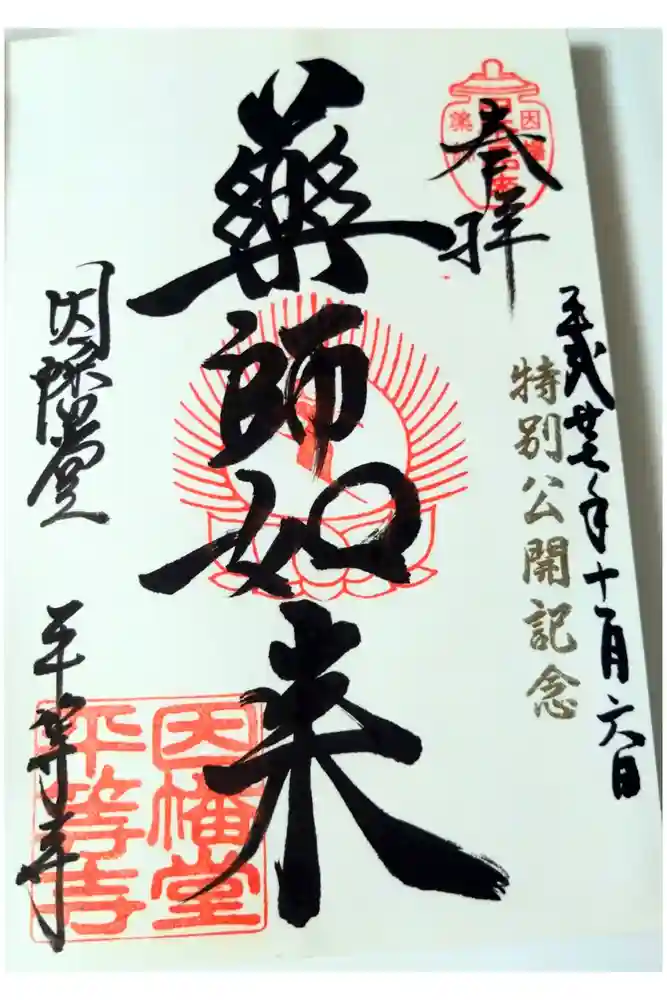 奉拝
平成廿七年十一月六日
特別公開記念
薬師如来
因幡堂
平等寺
因幡堂
平等寺
因幡
薬